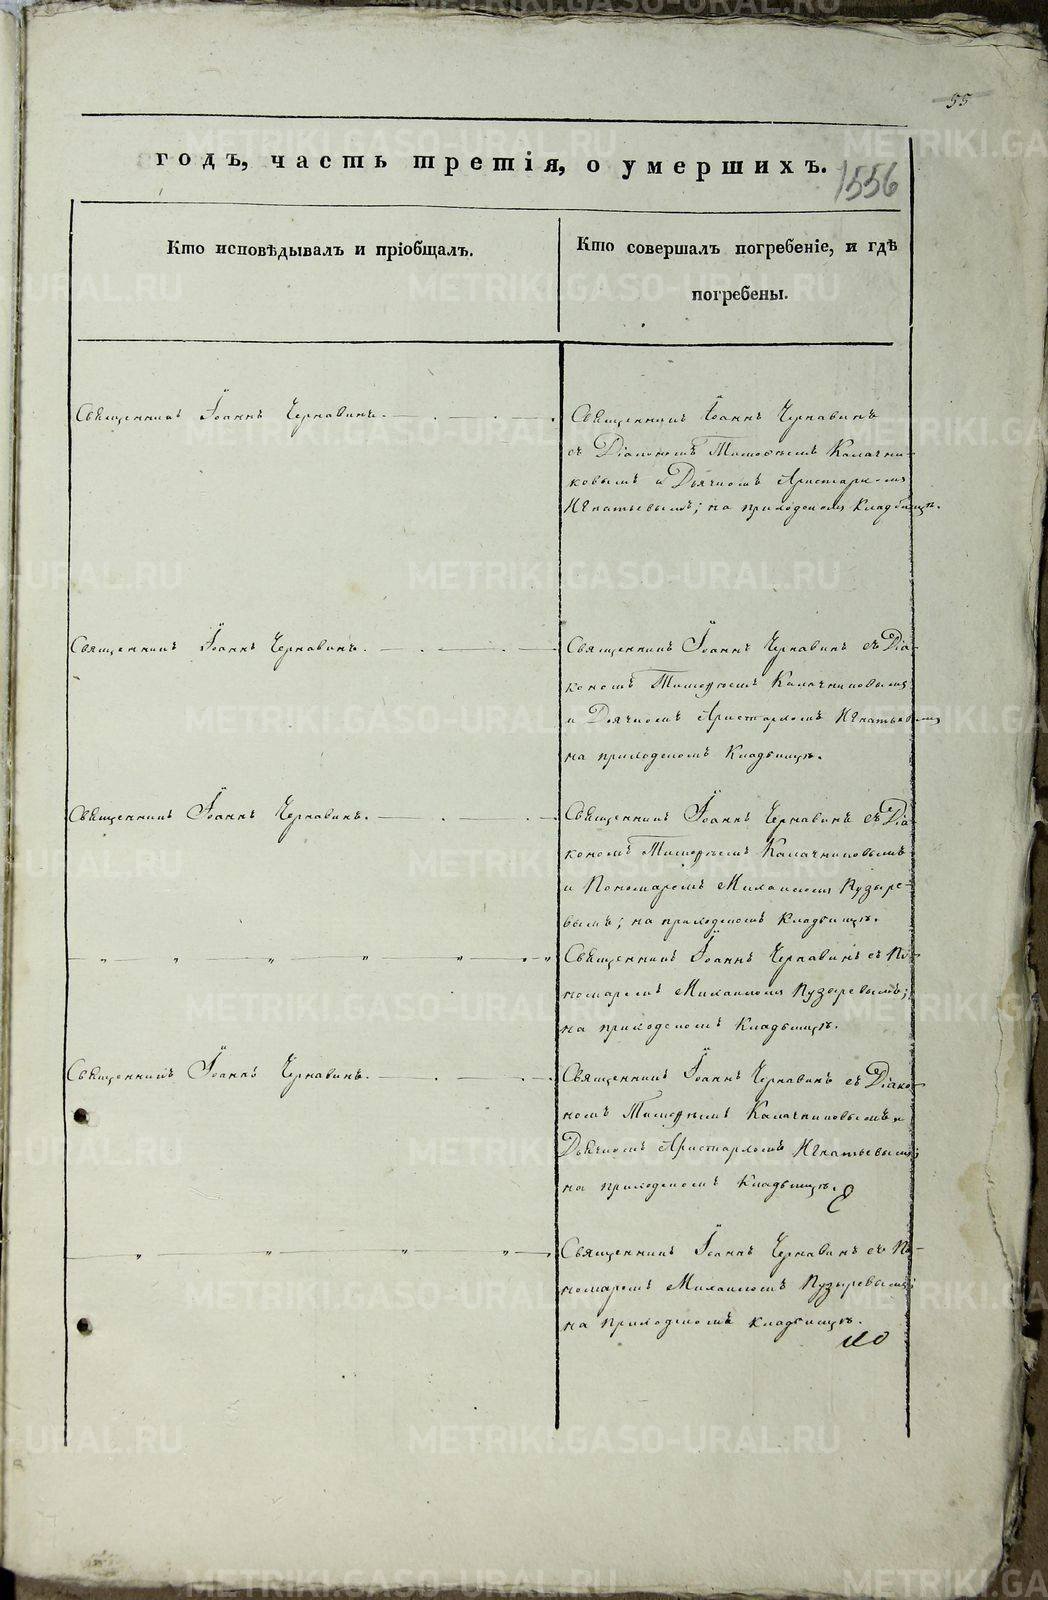 55
годъ, часть третія, о умершихъ.
1556
Кто исповѣдывалъ и пріобщалъ.
Кто совершалъ погребеніе, и гдѣ
погребены.
Священникъ Іоаннъ Чернавинъ.
Священникъ Іоаннъ Чернавинъ
съ Діакономъ Тимоѳеемъ Калачни-
ковымъ и Дьячкомъ Аристархомъ
Игнатьевымъ; на приходскомъ Кладбищѣ.
Священникъ Іоаннъ Чернавинъ.
Священникъ Іоаннъ Чернавинъ съ Діа-
кономъ Тимоѳеемъ Калачниковымъ
и Дьячкомъ Аристархомъ Игнатьевымъ
на приходскомъ Кладбищѣ.
Священникъ Іоаннъ Чернавинъ.
Священникъ Іоаннъ Чернавинъ съ Діа-
кономъ Тимоѳеемъ Калачниковымъ
и Пономаремъ Михаиломъ Пузыре-
вымъ; на приходскомъ Кладбищѣ.
Священникъ Іоаннъ Чернавинъ съ По-
номаремъ Михаиломъ Пузыревымъ;
на приходскомъ Кладбищѣ.
Священникъ Іоаннъ Чернавинъ.
Священникъ Іоаннъ Чернавинъ съ Діако-
номъ Тимоѳеемъ Калачниковымъ и
Дьячкомъ Аристархомъ Игнатьевымъ;
на приходскомъ Кладбищѣ.
Священникъ Іоаннъ Чернавинъ съ По-
номаремъ Михаиломъ Пузыревымъ;
на приходскомъ кладбищѣ.
METRIKI.GASO-URAL.RU